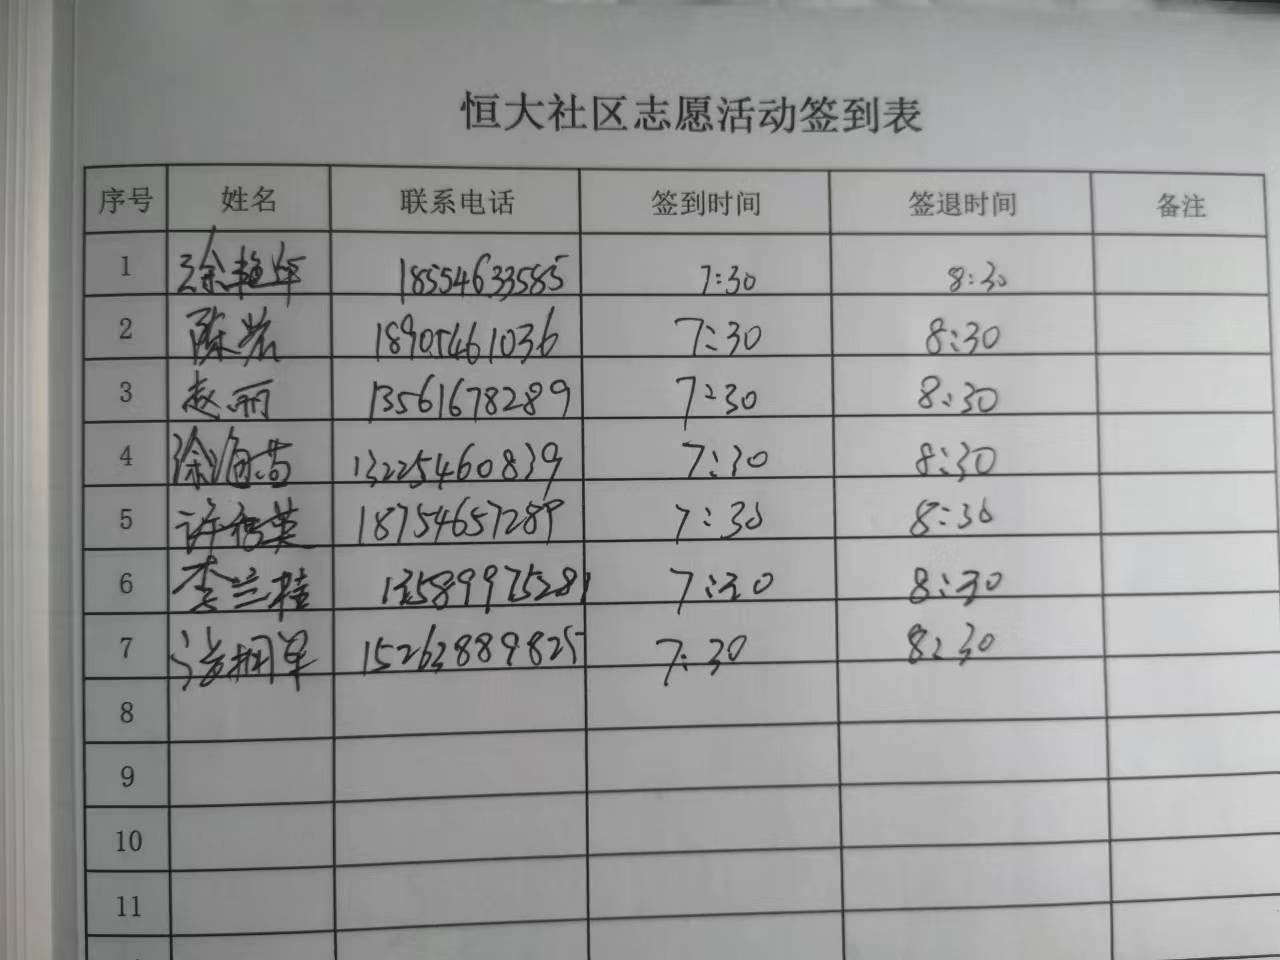 恒大社区志愿活动签到表
序号 姓名 联系电话 签到时间 签退时间 备注
1 徐艳华 18554633585 7:30 8:30
2 陈岩 18905461036 7:30 8:30
3 赵丽 13561678289 7:30 8:30
4 13225460839 7:30 8:30
5 许秀英 18754657289 7:30 8:30
6 李兰桂 13589975281 7:30 8:30
7 15263889825 7:30 8:30
8
9
10
11